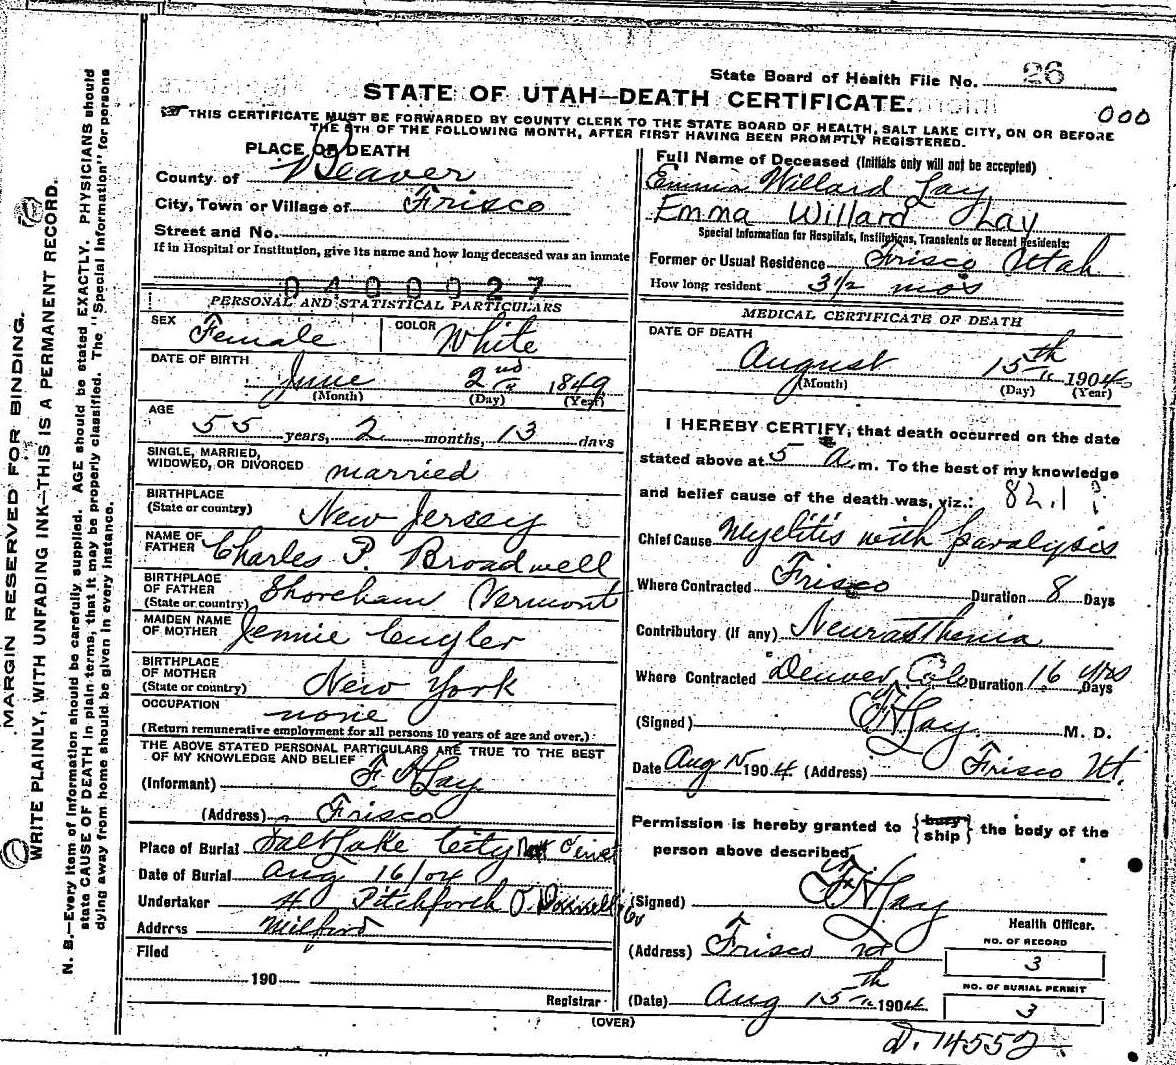 State Board of Health File No. 26
STATE OF UTAH—DEATH CERTIFICATE.
000
THIS CERTIFICATE MUST BE FORWARDED BY COUNTY CLERK TO THE STATE BOARD OF HEALTH, SALT LAKE CITY, ON OR BEFORE
THE 5TH OF THE FOLLOWING MONTH, AFTER FIRST HAVING BEEN PROMPTLY REGISTERED.
MARGIN RESERVED FOR BINDING.
WRITE PLAINLY, WITH UNFADING INK—THIS IS A PERMANENT RECORD.
N. B.—Every item of information should be carefully supplied. AGE should be stated EXACTLY. PHYSICIANS should
state CAUSE OF DEATH in plain terms, that it may be properly classified. The "Special Information" for persons
dying away from home should be given in every instance.
PLACE OF DEATH
County of Beaver
City, Town or Village of Frisco
Street and No.
If in Hospital or Institution, give its name and how long deceased was an inmate
0400027
PERSONAL AND STATISTICAL PARTICULARS
SEX Female COLOR White
DATE OF BIRTH
June 2nd 1849
(Month) (Day) (Year)
AGE
55 years, 2 months, 13 days
SINGLE, MARRIED,
WIDOWED, OR DIVORCED married
BIRTHPLACE
(State or country) New Jersey
NAME OF
FATHER Charles P. Broadwell
BIRTHPLACE
OF FATHER
(State or country) Shoreham Vermont
MAIDEN NAME
OF MOTHER Jennie Cuyler
BIRTHPLACE
OF MOTHER
(State or country) New York
OCCUPATION none
(Return remunerative employment for all persons 10 years of age and over.)
THE ABOVE STATED PERSONAL PARTICULARS ARE TRUE TO THE BEST
OF MY KNOWLEDGE AND BELIEF
(Informant) F. H Lay
(Address) Frisco
Place of Burial Salt Lake City Mt Olivet
Date of Burial Aug 16/04
Undertaker H Pitchforth
Address Milford
Filed
190
Registrar
Full Name of Deceased (Initials only will not be accepted)
Emma Willard Lay
Emma Willard Lay
Special Information for Hospitals, Institutions, Transients or Recent Residents:
Former or Usual Residence Frisco Utah
How long resident 3 1/2 mos
MEDICAL CERTIFICATE OF DEATH
DATE OF DEATH
August 15th 1904
(Month) (Day) (Year)
I HEREBY CERTIFY, that death occurred on the date
stated above at 5 a. m. To the best of my knowledge
and belief cause of the death was, viz.: 82.1 ?
Chief Cause Myelitis with paralysis
Where Contracted Frisco Duration 8 Days
Contributory (if any) Neurasthenia
Where Contracted Denver, Colo Duration 16 yrs Days
(Signed) F H Lay M. D.
Date Aug 15 1904 (Address) Frisco Ut.
Permission is hereby granted to {bury ship} the body of the
person above described.
(Signed) F H Lay
Health Officer.
(Address) Frisco
NO. OF RECORD
3
NO. OF BURIAL PERMIT
3
(Date) Aug 15th 1904
(OVER)
D. 14552